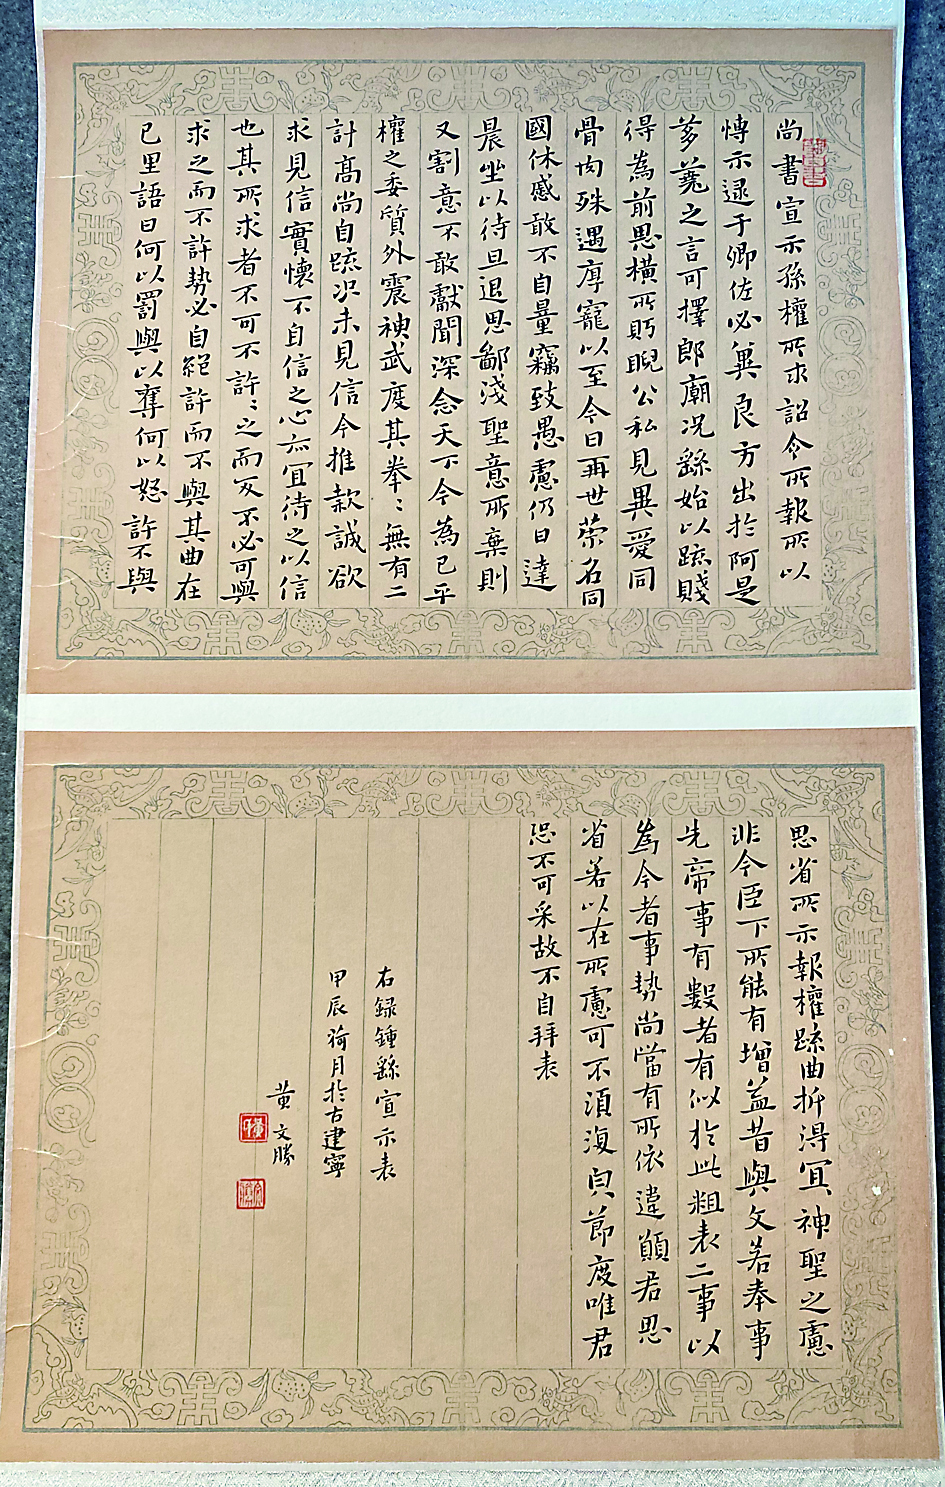 尚書宣示孫權所求詔令所報所以
博示逮于卿佐必冀良方出於阿是
芻蕘之言可擇郎廟況繇始以疏賤
得為前恩橫所眄睨公私見異愛同
骨肉殊遇厚寵以至今日再世榮名同
國休慼敢不自量竊致愚慮仍日達
晨坐以待旦退思鄙淺聖意所棄則
又割意不敢獻聞深念天下今為已平
權之委質外震神武度其拳〻無有二
計高尚自疏況未見信今推款誠欲
求見信實懷不自信之心亦宜待之以信
也其所求者不可不許〻之而反不必可與
求之而不許勢必自絕許而不與其曲在
已里語曰何以罰與以奪何以怒許不與
思省所示報權疏曲折得宜神聖之慮
非今臣下所能有增益昔與文若奉事
先帝事有數者有似於此粗表二事以
為今者事勢尚當有所依違願君思
省若以在所慮可不須復皃節度唯君
恐不可采故不自拜表
右録鍾繇宣示表
甲辰荷月於古建寧
黃文勝